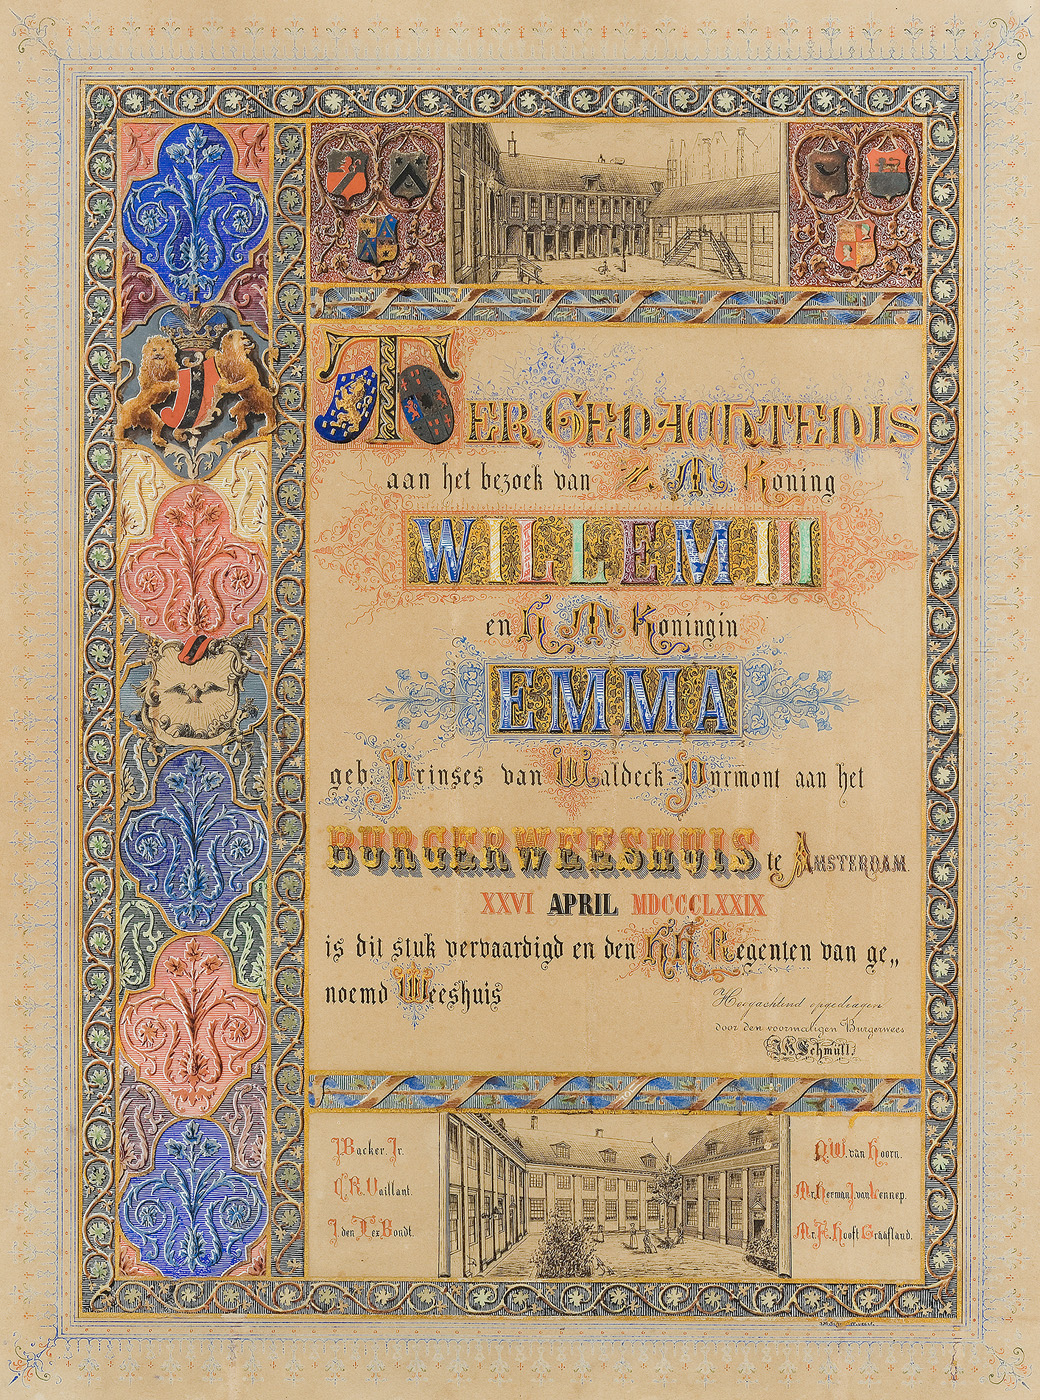 TER GEDACHTENIS
aan het bezoek van Z. M. Koning
WILLEM III
en H. M. Koningin
EMMA
geb. Prinses van Waldeck-Pyrmont aan het
BURGERWEESHUIS te AMSTERDAM.
XXVI APRIL MDCCCLXXIX
is dit stuk vervaardigd en den HH Regenten van ge„
noemd Weeshuis
Hoogachtend opgedragen
door den voormaligen Burgerwees
Schmüll.
Backer Jr.
C.R. Vaillant.
J. den Tex Bondt.
van Hoorn.
Mr. Herman J. van Lennep.
Mr. F. Hooft Graafland.